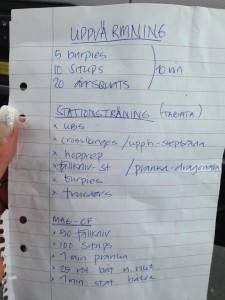 UPPVÄRMNING
5 burpies
10 Situps
20 airsquats
10 min
STATIONSTRÄNING (TABATA)
* ubs
* crosslenges / upph-stepbräda
* hopprep
* fällkniv-st / pranka-dragonada
* burpies
* trusters
MAG-CF
* 50 fällkniv
* 100 situps
* 1 min planka
* 25 rd bat n. nut
* 1 min stat